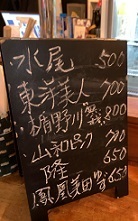 水尾 500
東洋美人 700
楯野川 800
山和ピンク 700
隆 650
鳳凰美田 650